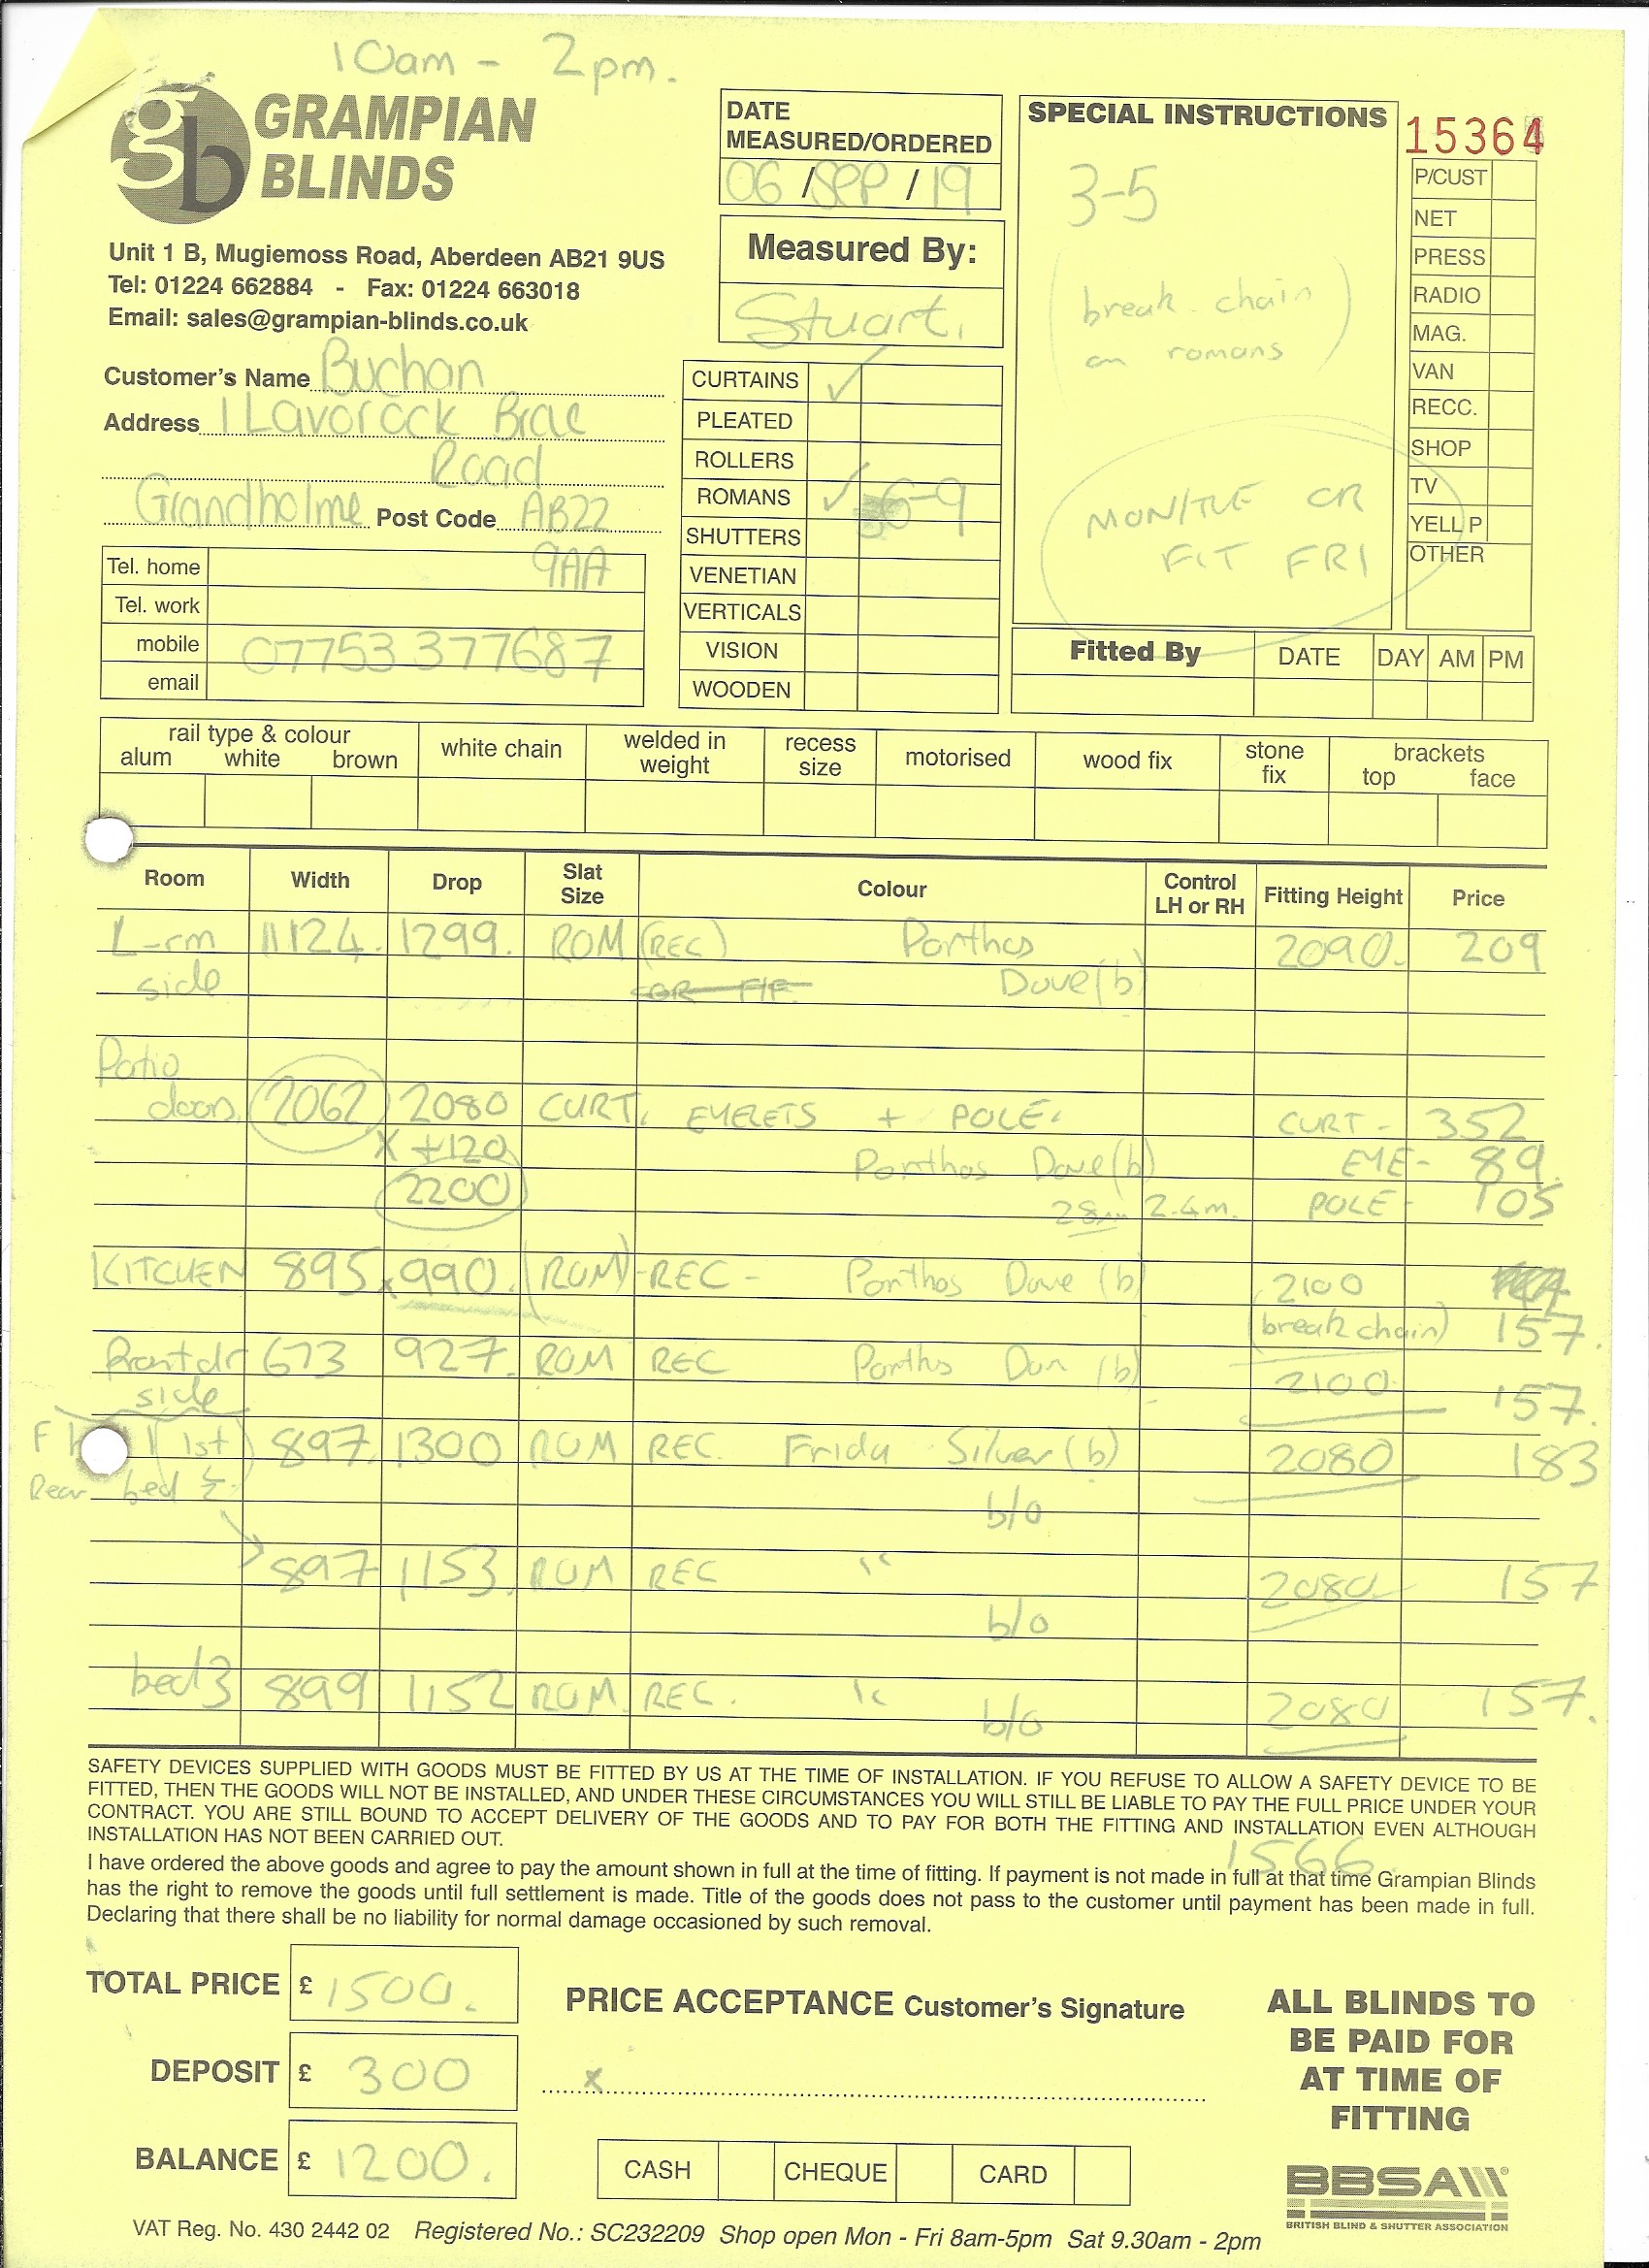 10am - 2pm.
gb GRAMPIAN
BLINDS
Unit 1 B, Mugiemoss Road, Aberdeen AB21 9US
Tel: 01224 662884 - Fax: 01224 663018
Email: sales@grampian-blinds.co.uk
DATE
MEASURED/ORDERED
06 / SEP / 19
Measured By:
Stuart.
SPECIAL INSTRUCTIONS
3-5
(break chain
on romans)
MON/TUE OR
FIT FRI
15364
P/CUST
NET
PRESS
RADIO
MAG.
VAN
RECC.
SHOP
TV
YELL P
OTHER
Customer's Name Buchan
Address 1 Lavorock Brae
Road
Grandholme Post Code AB22
9AA
Tel. home
Tel. work
mobile 07753 377687
email
CURTAINS ✓
PLEATED
ROLLERS
ROMANS ✓ 6-9
SHUTTERS
VENETIAN
VERTICALS
VISION
WOODEN
Fitted By DATE DAY AM PM
rail type & colour
alum white brown
white chain
welded in
weight
recess
size
motorised
wood fix
stone
fix
brackets
top face
Room Width Drop Slat Size Colour Control LH or RH Fitting Height Price
L-rm 1124. 1299. ROM (REC) Porthos 2090. 209
side Dove (b)
Patio
doors 2062 2080 CURT. EYELETS + POLE. CURT - 352
X +120 Porthos Dove (b) EYE - 89.
2200 28mm 2.4m. POLE - 105
KITCHEN 895 x 990. (ROM) - REC - Porthos Dove (b) 2100
(break chain) 157.
Front dr 673 927. ROM REC Porthos Dove (b) 2100 157.
side
(1st) 897. 1300 ROM REC. Frida Silver (b) 2080 183
Rear bed 2.
b/o
897 1153. ROM REC " 2080 157
b/o
bed 3 899 1152 ROM REC. " 2080 157.
b/o
SAFETY DEVICES SUPPLIED WITH GOODS MUST BE FITTED BY US AT THE TIME OF INSTALLATION. IF YOU REFUSE TO ALLOW A SAFETY DEVICE TO BE
FITTED, THEN THE GOODS WILL NOT BE INSTALLED, AND UNDER THESE CIRCUMSTANCES YOU WILL STILL BE LIABLE TO PAY THE FULL PRICE UNDER YOUR
CONTRACT. YOU ARE STILL BOUND TO ACCEPT DELIVERY OF THE GOODS AND TO PAY FOR BOTH THE FITTING AND INSTALLATION EVEN ALTHOUGH
INSTALLATION HAS NOT BEEN CARRIED OUT.
1566
I have ordered the above goods and agree to pay the amount shown in full at the time of fitting. If payment is not made in full at that time Grampian Blinds
has the right to remove the goods until full settlement is made. Title of the goods does not pass to the customer until payment has been made in full.
Declaring that there shall be no liability for normal damage occasioned by such removal.
TOTAL PRICE £ 1500.
DEPOSIT £ 300
BALANCE £ 1200.
PRICE ACCEPTANCE Customer's Signature
x
CASH CHEQUE CARD
ALL BLINDS TO
BE PAID FOR
AT TIME OF
FITTING
BBSA
BRITISH BLIND & SHUTTER ASSOCIATION
VAT Reg. No. 430 2442 02 Registered No.: SC232209 Shop open Mon - Fri 8am-5pm Sat 9.30am - 2pm